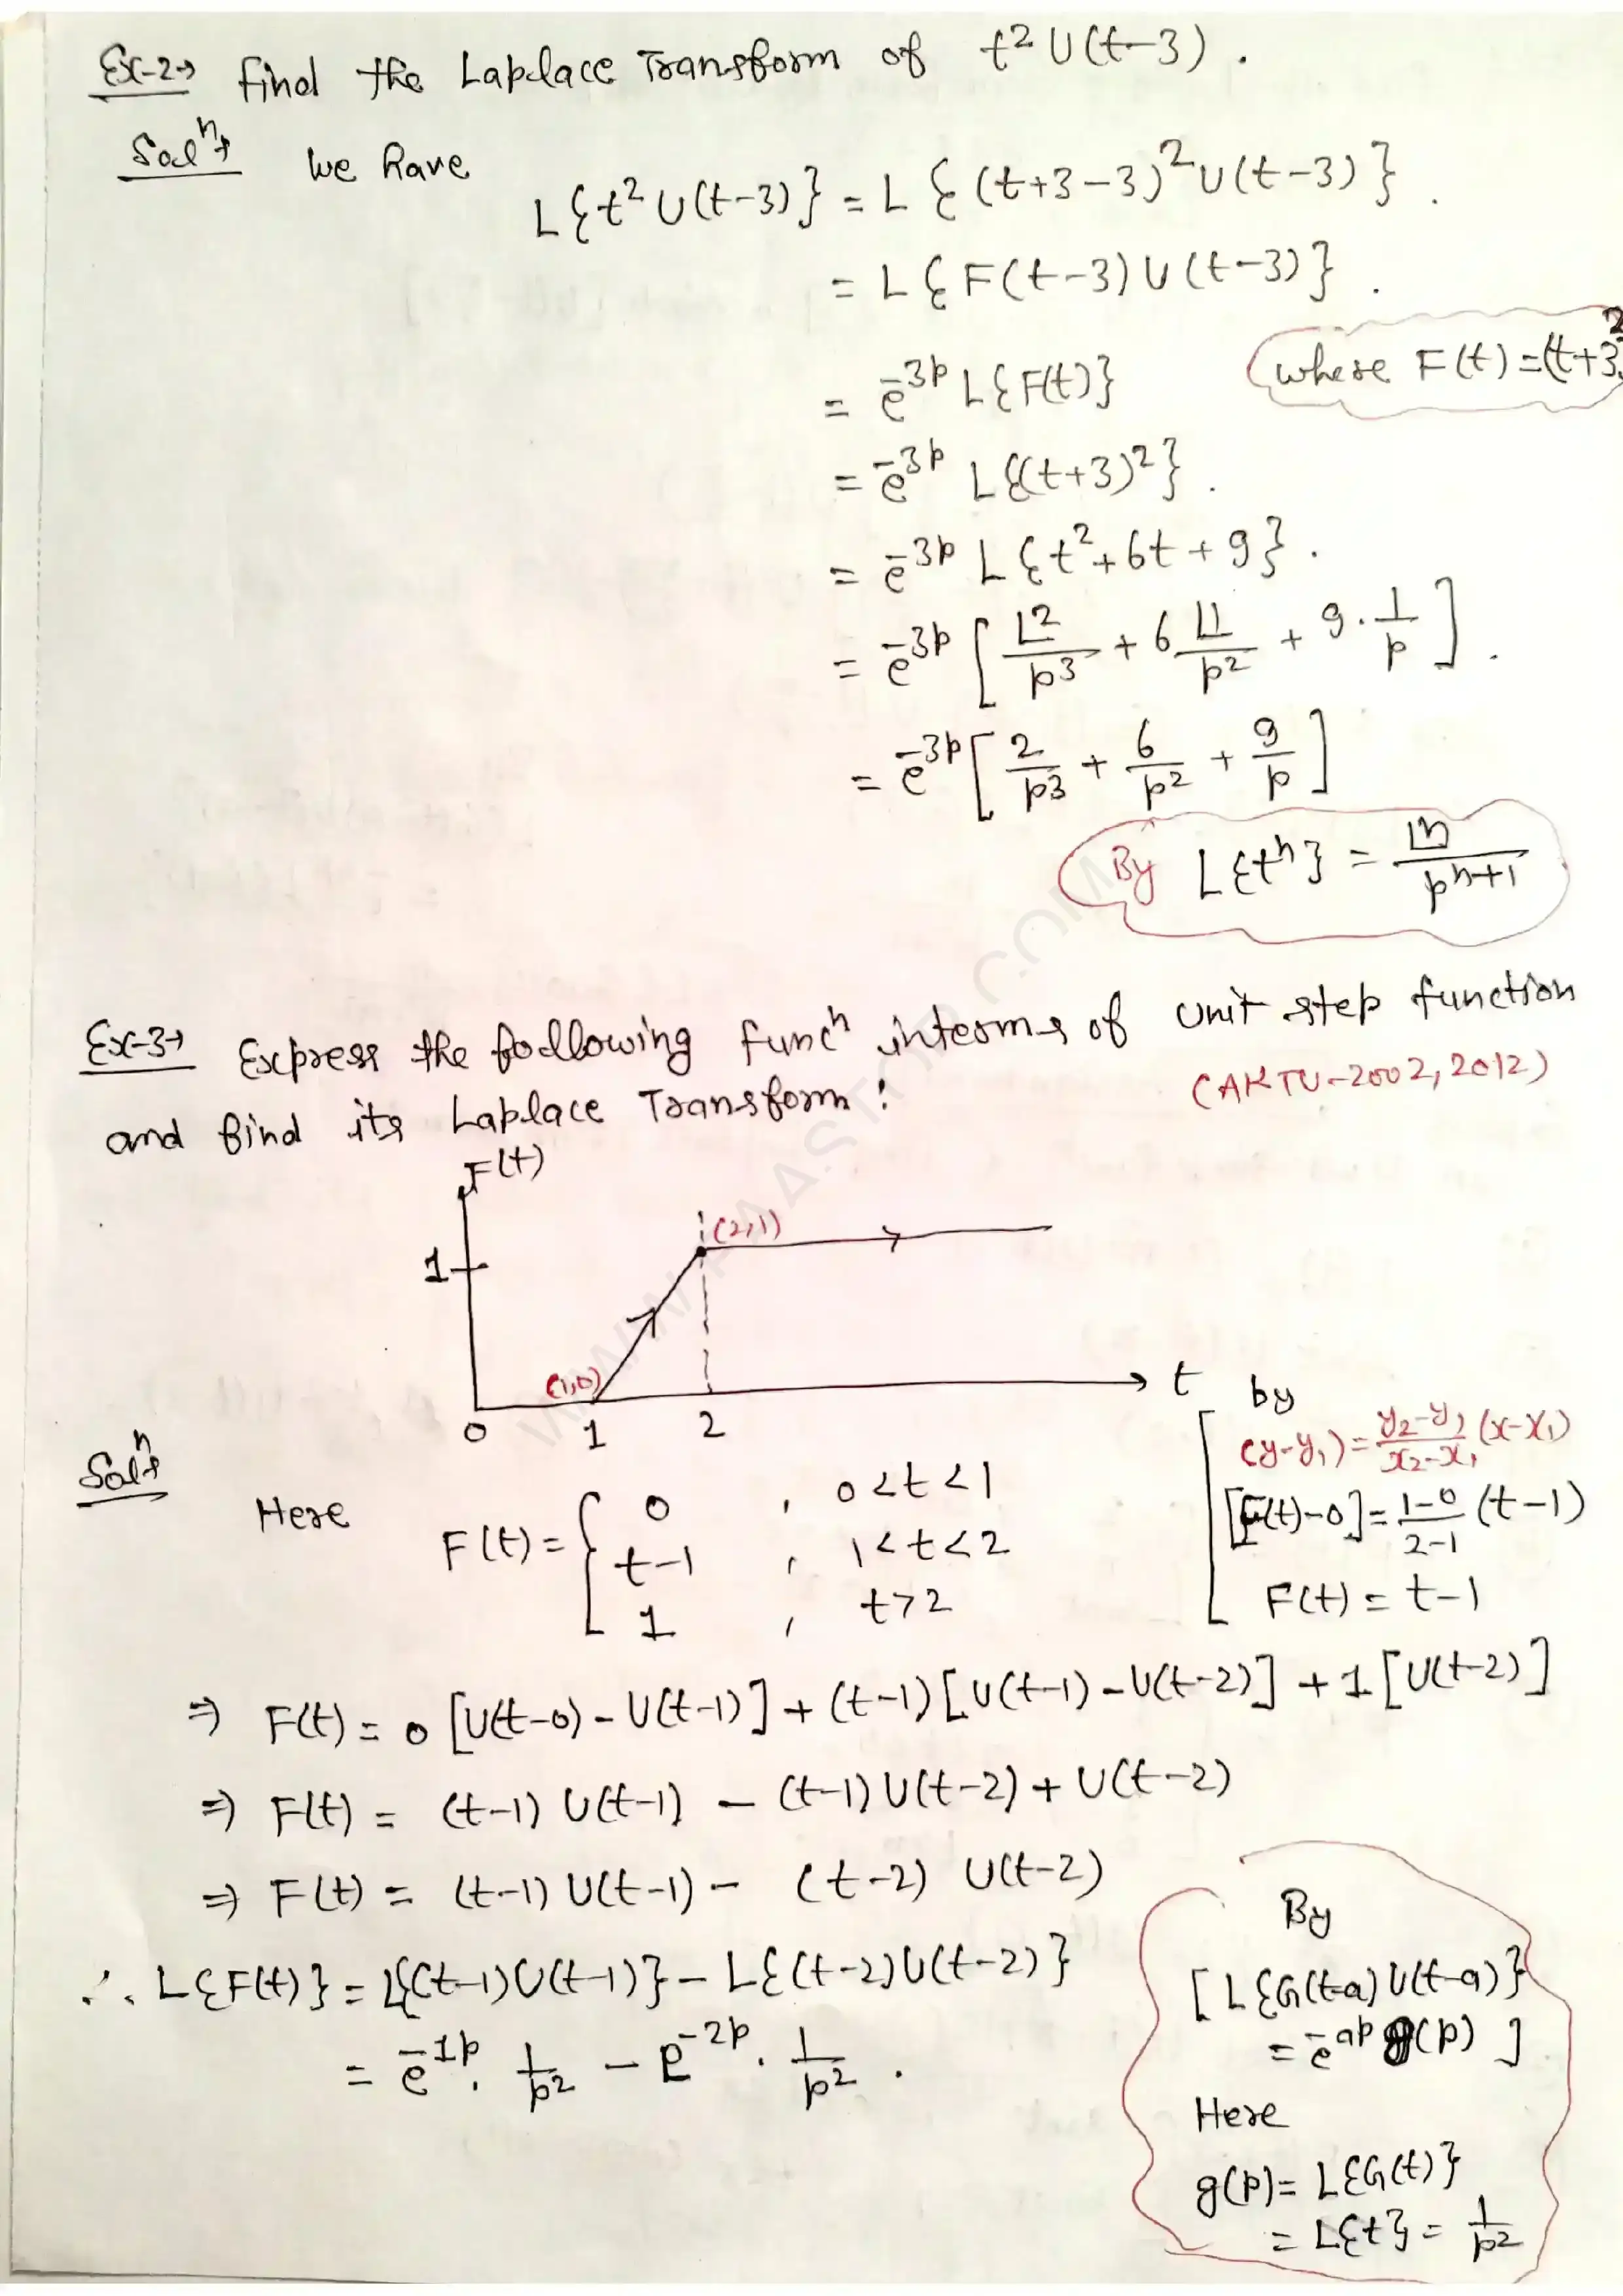 Ex-2→ Find the Laplace Transform of t² U(t-3).
Solⁿ→ We have
L{t² U(t-3)} = L{(t+3-3)² U(t-3)}.
= L{F(t-3) U(t-3)}.
= e^{-3p} L{F(t)} where F(t) = (t+3)²
= e^{-3p} L{(t+3)²}.
= e^{-3p} L{t²+6t+9}.
= e^{-3p} [ ∟2/p³ + 6 ∟1/p² + 9·1/p ].
= e^{-3p} [ 2/p³ + 6/p² + 9/p ]
By L{tⁿ} = ∟n/p^{n+1}
Ex-3→ Express the following funcⁿ interms of unit step function
(AKTU-2002, 2012)
and find its Laplace Transform:
F(t)
(2,1)
1
(1,0)
t
0 1 2
by
(y-y₁) = (y₂-y₁)/(x₂-x₁) (x-x₁)
[F(t)-0] = (1-0)/(2-1) (t-1)
F(t) = t-1
Solⁿ→
Here F(t) = { 0 , 0<t<1
t-1 , 1<t<2
1 , t>2
⇒ F(t) = 0 [U(t-0) - U(t-1)] + (t-1) [U(t-1) - U(t-2)] + 1 [U(t-2)]
⇒ F(t) = (t-1) U(t-1) - (t-1) U(t-2) + U(t-2)
⇒ F(t) = (t-1) U(t-1) - (t-2) U(t-2)
∴ L{F(t)} = L{(t-1)U(t-1)} - L{(t-2)U(t-2)}
= e^{-1p}. 1/p² - e^{-2p}. 1/p².
By
[L{G(t-a) U(t-a)}
= e^{-ap} g(p) ]
Here
g(p) = L{G(t)}
= L{t} = 1/p²